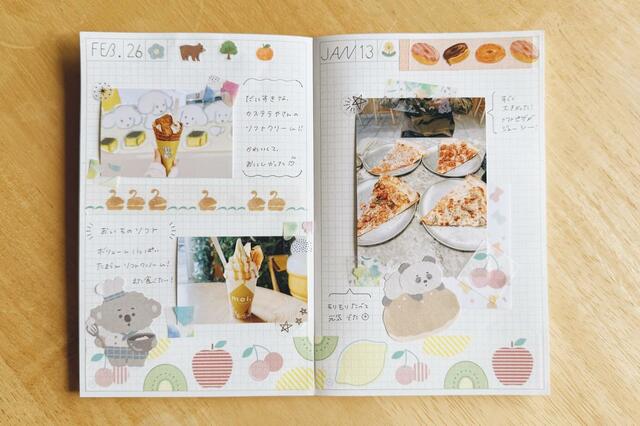 FEB. 26
だいすきな、
カステラやさんの
ソフトクリーム!!
かわいくて、
おいしかった
おいものソフト
ボリュームいっぱい
たまらん ソフトクリーム!
また食べたい!
moi
JAN 13
すごい
大きかった!
トマトピザが
ジューシー!
もりもりたべて